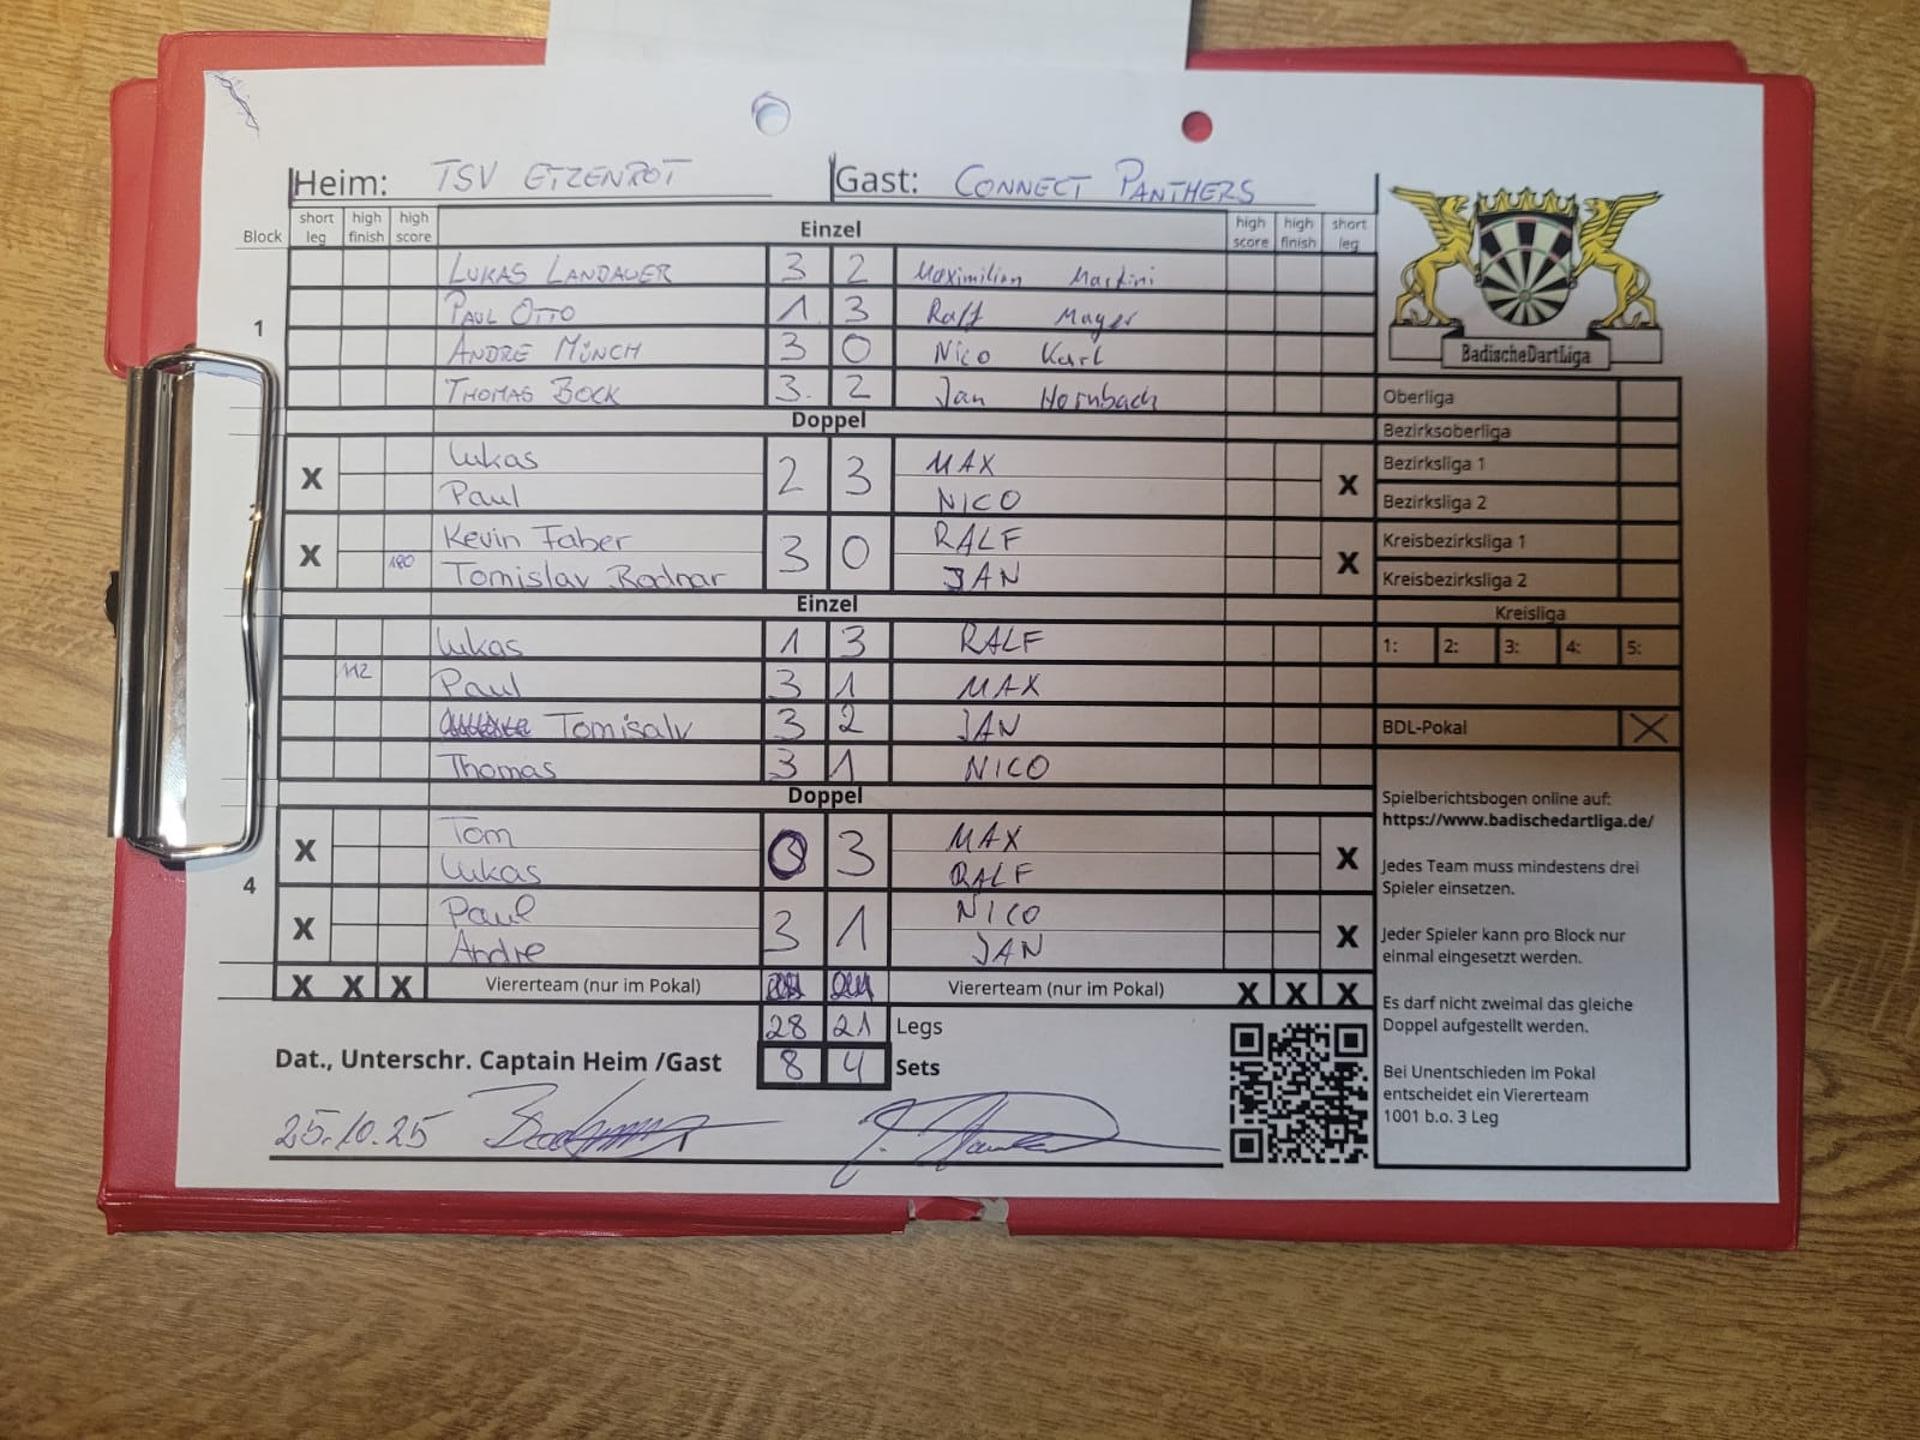 Heim: TSV ETZENROT Gast: CONNECT PANTHERS
Block short leg high finish high score Einzel high score high finish short leg
LUKAS LANDAUER 3 2 Maximilian Martini
1 PAUL OTTO 1 3 Ralf Mayer
ANDRE MÜNCH 3 0 Nico Karl
THOMAS BOCK 3 2 Jan Hornbach
Doppel
X Lukas 2 3 MAX X
Paul NICO
X Kevin Faber 3 0 RALF X
180 Tomislav Bodnar JAN
Einzel
Lukas 1 3 RALF
112 Paul 3 1 MAX
Tomisalv 3 2 JAN
Thomas 3 1 NICO
Doppel
X Tom 0 3 MAX X
Lukas RALF
4
X Paul 3 1 NICO X
Andre JAN
X X X Viererteam (nur im Pokal) Viererteam (nur im Pokal) X X X
28 21 Legs
Dat., Unterschr. Captain Heim /Gast 8 4 Sets
25.10.25
BadischeDartLiga
Oberliga
Bezirksoberliga
Bezirksliga 1
Bezirksliga 2
Kreisbezirksliga 1
Kreisbezirksliga 2
Kreisliga
1: 2: 3: 4: 5:
BDL-Pokal X
Spielberichtsbogen online auf:
https://www.badischedartliga.de/
Jedes Team muss mindestens drei
Spieler einsetzen.
Jeder Spieler kann pro Block nur
einmal eingesetzt werden.
Es darf nicht zweimal das gleiche
Doppel aufgestellt werden.
Bei Unentschieden im Pokal
entscheidet ein Viererteam
1001 b.o. 3 Leg